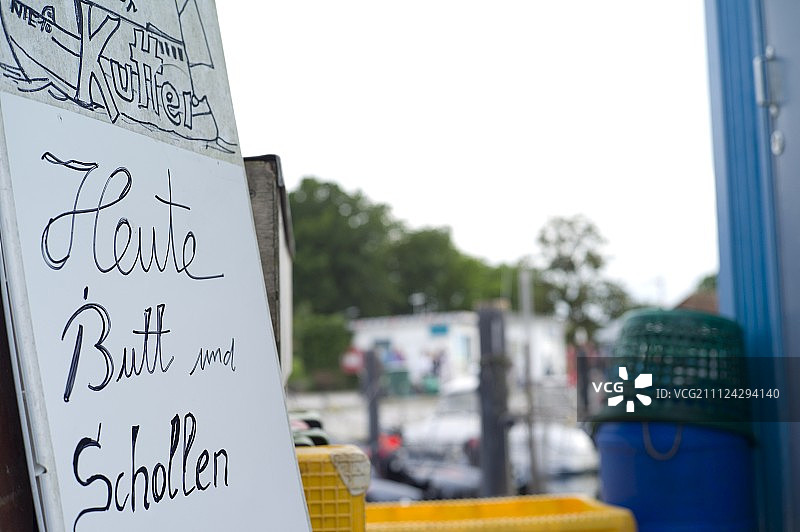 NIE-16
Kutter
Heute
Butt und
Schollen
VCG
ID: VCG211124294140